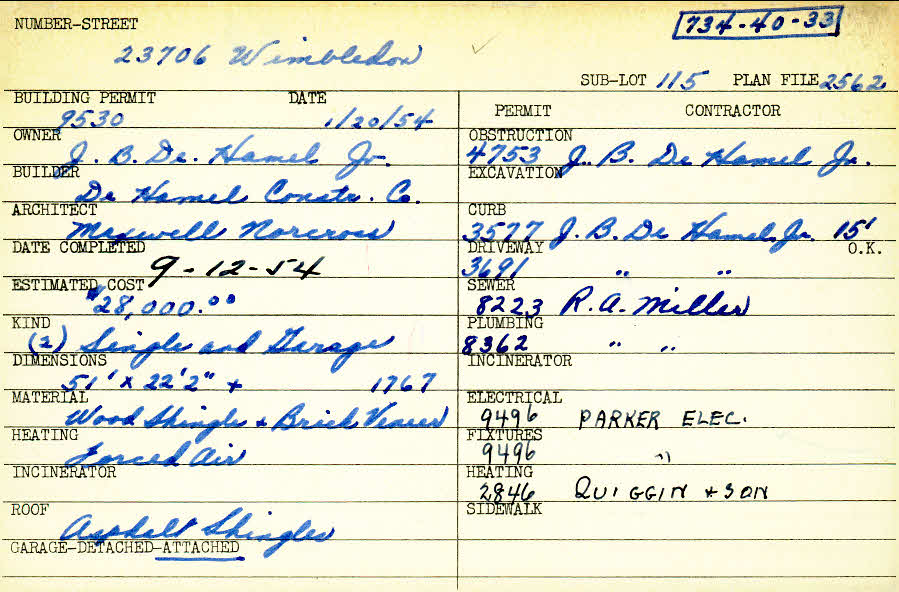 NUMBER-STREET 734-40-33
23706 Wimbledon
SUB-LOT 115 PLAN FILE 2562
BUILDING PERMIT DATE
9530 1/20/54
OWNER
J. B. De Hamel Jr.
BUILDER
De Hamel Constr. Co.
ARCHITECT
Maxwell Norcross
DATE COMPLETED
9-12-54
ESTIMATED COST
$28,000.00
KIND
(2) Single and Garage
DIMENSIONS
51' x 22'2" + 1767
MATERIAL
Wood Shingle + Brick Veneer
HEATING
Forced Air
INCINERATOR
ROOF
Asphalt Shingles
GARAGE-DETACHED-ATTACHED
PERMIT CONTRACTOR
OBSTRUCTION
4753 J. B. De Hamel Jr.
EXCAVATION
CURB
3577 J. B. De Hamel Jr. 15'
DRIVEWAY O.K.
3691 " "
SEWER
8223 R. A. Miller
PLUMBING
8362 " "
INCINERATOR
ELECTRICAL
9496 PARKER ELEC.
FIXTURES
9496 "
HEATING
2846 QUIGGIN + SON
SIDEWALK